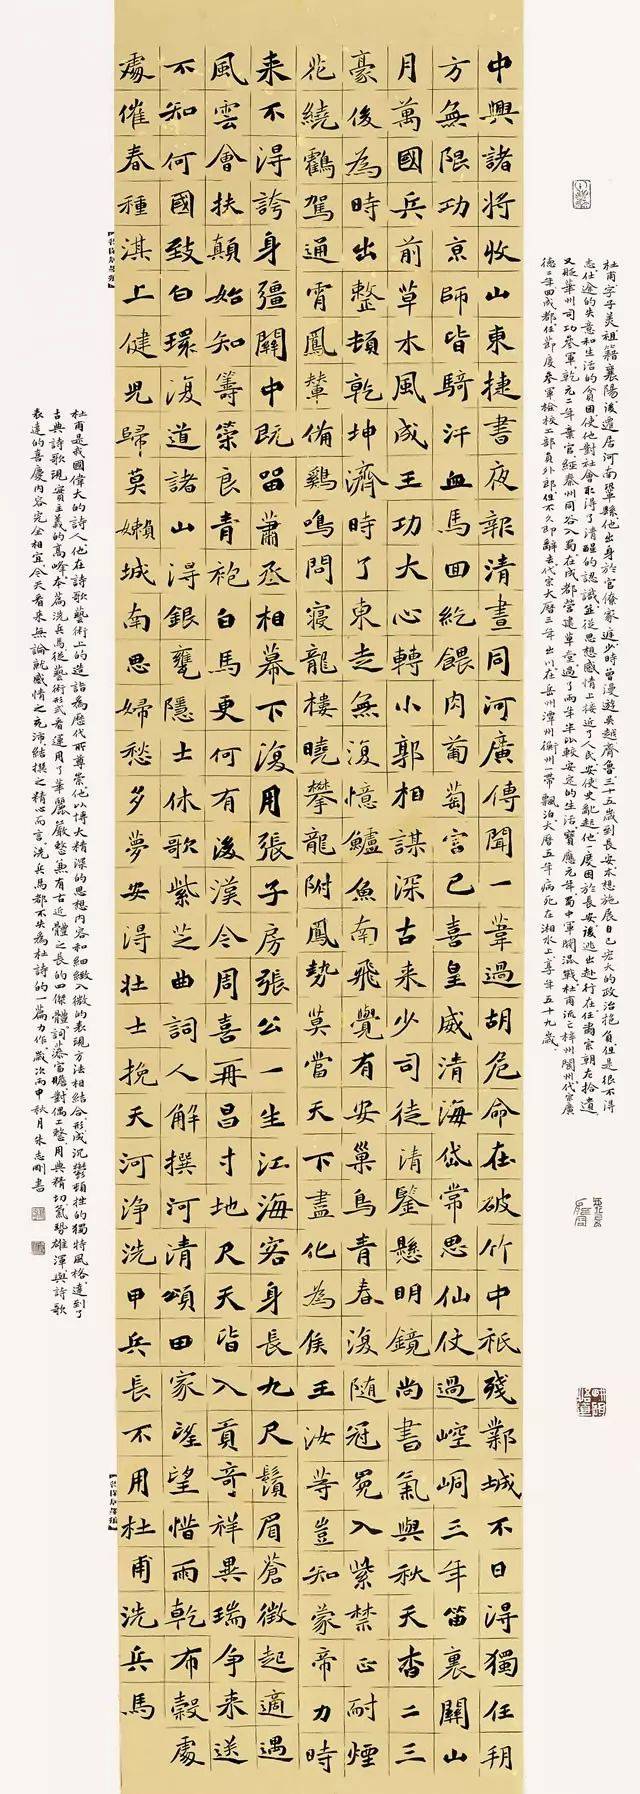 杜甫字子美祖籍襄陽後遷居河南鞏縣他出身於官僚家庭少時曾漫遊吳越齊魯三十五歲到長安本想施展自己宏大的政治抱負但是很不得
志仕途的失意和生活的貧困使他對社會取得了清醒的認識並從思想感情上接近了人民安史亂起他一度困於長安後逃出赴行在任肅宗朝左拾遺
又貶華州司功參軍乾元二年棄官經秦州同谷入蜀在成都營建草堂過了兩年半比較安定的生活寶應元年蜀中軍閥混戰杜甫流亡梓州閬州代宗廣
德二年回成都任節度參軍檢校工部員外郎但不久即辭去代宗大曆三年出川在岳州潭州衡州一帶飄泊大曆五年病死在湘水上享年五十九歲
中興諸將收山東捷書夜報清晝同河廣傳聞一葦過胡危命在破竹中祇殘鄴城不日得獨任朔
方無限功京師皆騎汗血馬回紇餵肉葡萄宮已喜皇威清海岱常思仙仗過崆峒三年笛裏關山
月萬國兵前草木風成王功大心轉小郭相謀深古來少司徒清鑒懸明鏡尚書氣與秋天杳二三
豪後為時出整頓乾坤濟時了東走無復憶鱸魚南飛覺有安巢鳥青春復隨冠冕入紫禁正耐煙
花繞鶴駕通宵鳳輦備雞鳴問寢龍樓曉攀龍附鳳勢莫當天下盡化為侯王汝等豈知蒙帝力時
来不得誇身彊關中既留蕭丞相幕下復用張子房張公一生江海客身長九尺鬚眉蒼徵起適遇
風雲會扶顛始知籌策良青袍白馬更何有後漢今周喜再昌寸地尺天皆入貢奇祥異瑞爭来送
不知何國致白環復道諸山得銀甕隱士休歌紫芝曲詞人解撰河清頌田家望望惜雨乾布穀處
處催春種淇上健兒歸莫嬾城南思婦愁多夢安得壯士挽天河淨洗甲兵長不用杜甫洗兵馬
杜甫是我國偉大的詩人他在詩歌藝術上的造詣為歷代所尊崇他以博大精深的思想內容和細緻入微的表現方法相結合形成沉鬱頓挫的獨特風格達到了
古典詩歌現實主義的高峰本篇洗兵馬從藝術形式看運用了華麗嚴整兼有古近體之長的四傑體詞藻富贍對偶工整用典精切氣勢雄渾與詩歌
表達的喜慶內容完全相宜今天看來無論就感情之充沛結撰之精心而言洗兵馬都不失為杜詩的一篇力作歲次丙申秋月朱志剛書